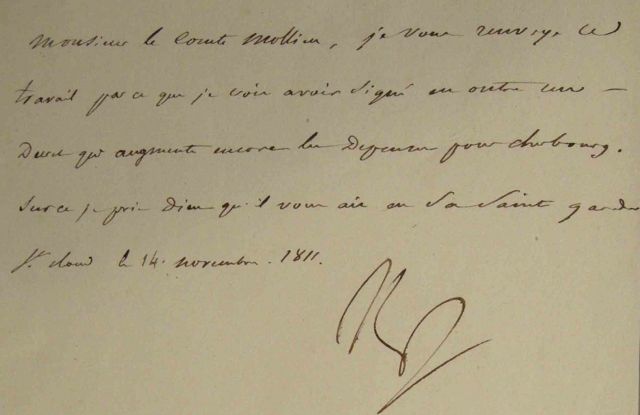 Monsieur le Comte Mollien, je vous renvoye ce
travail parce que je crois avoir signé en outre un
Decret qui augmente encore les Depenses pour cherbourg.
Sur ce je prie Dieu qu'il vous aie en Sa Sainte garde
St. cloud le 14. novembre. 1811.